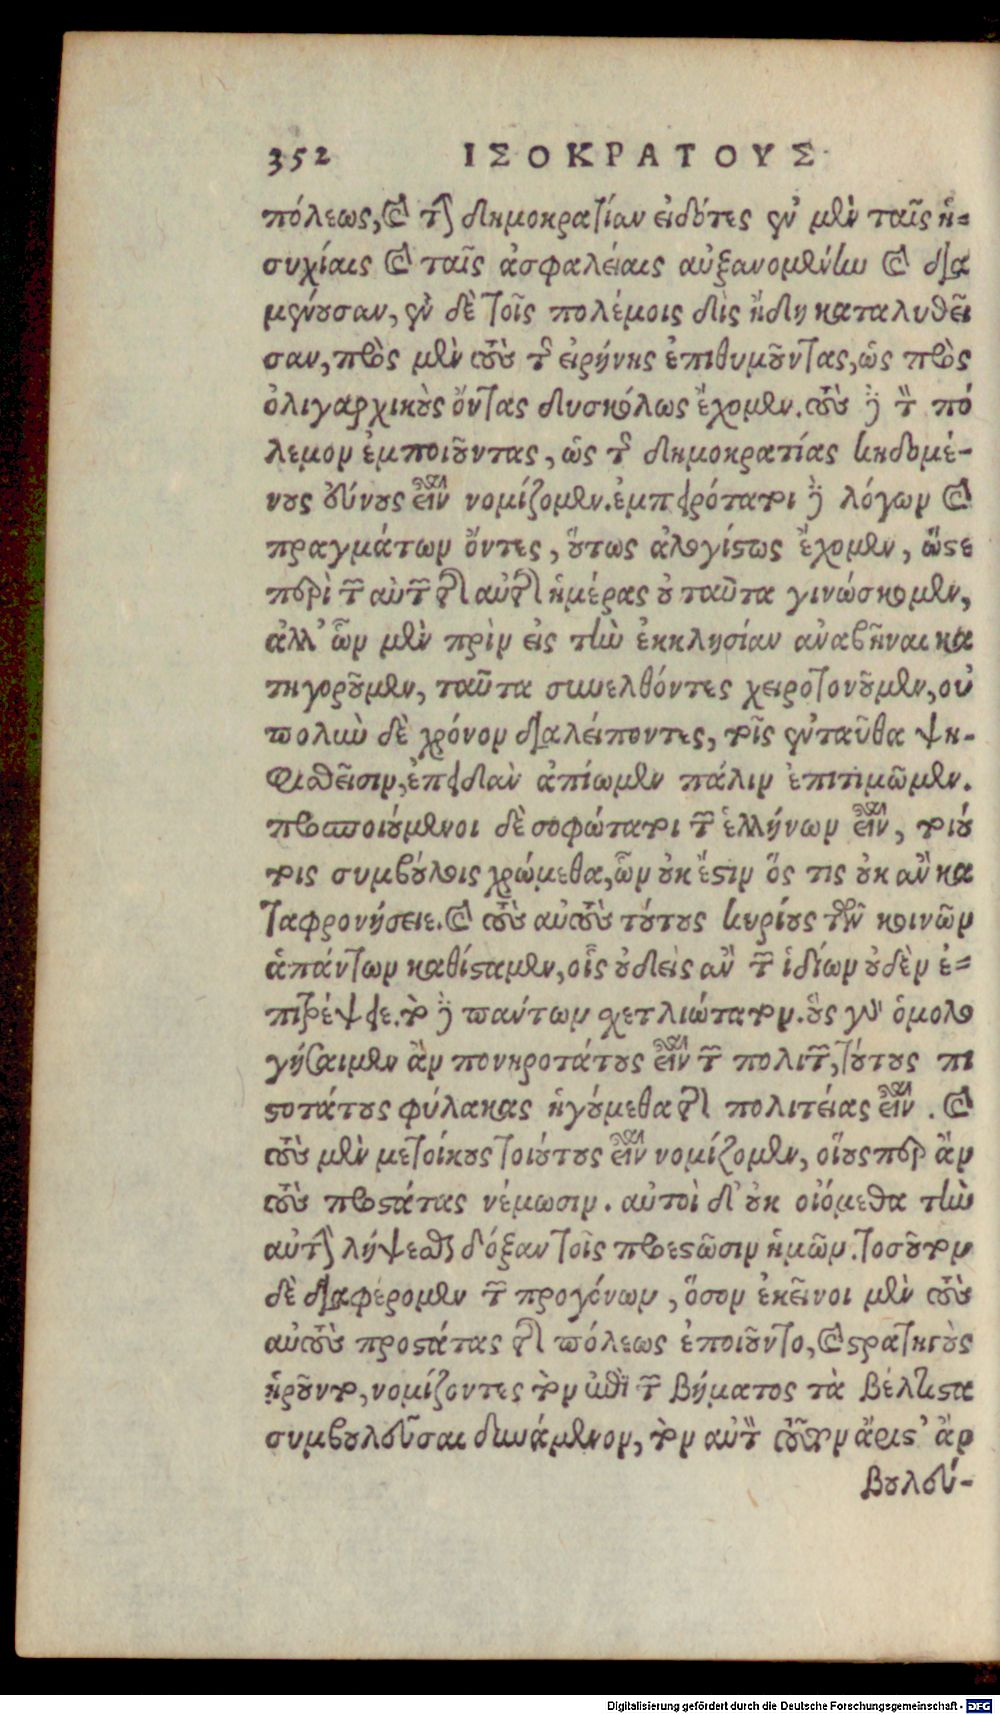 352 ΙΣΟΚΡΑΤΟΥΣ
πόλεως, καὶ τὴν δημοκρατίαν εἰδότες ἐν μὲν ταῖς ἡ-
συχίαις καὶ ταῖς ἀσφαλείαις αὐξανομένην καὶ δια
μένουσαν, ἐν δὲ τοῖς πολέμοις δὶς ἤδη καταλυθεῖ
σαν, πρὸς μὲν τοὺς τῆς εἰρήνης ἐπιθυμοῦντας, ὡς πρὸς
ὀλιγαρχικοὺς ὄντας δυσκόλως ἔχομεν. τοὺς δὲ τὸν πό
λεμον ἐμποιοῦντας, ὡς τῆς δημοκρατίας κηδομέ-
νους εὔνους εἶναι νομίζομεν. ἐμπειρότατοι δὲ λόγων καὶ
πραγμάτων ὄντες, οὕτως ἀλογίστως ἔχομεν, ὥστε
περὶ τῶν αὐτῶν τῆς αὐτῆς ἡμέρας οὐ ταῦτα γινώσκομεν,
ἀλλ' ὧν μὲν πρὶν εἰς τὴν ἐκκλησίαν ἀναβῆναι κα
τηγοροῦμεν, ταῦτα συνελθόντες χειροτονοῦμεν, οὐ
πολὺν δὲ χρόνον διαλείποντες, τοῖς ἐνταῦθα ψη-
φισθεῖσιν, ἐπειδὰν ἀπίωμεν πάλιν ἐπιτιμῶμεν.
προσποιούμενοι δὲ σοφώτατοι τῶν ἑλλήνων εἶναι, τοιού
τοις συμβούλοις χρώμεθα, ὧν οὐκ ἔστιν ὅς τις οὐκ ἂν κα
ταφρονήσειε. καὶ τοὺς αὐτοὺς τούτους κυρίους τῶν κοινῶν
ἁπάντων καθίσταμεν, οἷς οὐδεὶς ἂν τῶν ἰδίων οὐδὲν ἐ-
πιτρέψειε. τὸ δὲ πάντων σχετλιώτατον. οὓς γὰρ ὁμολο
γήσαιμεν ἂν πονηροτάτους εἶναι τῶν πολιτῶν, τούτους πι
στοτάτους φύλακας ἡγούμεθα τῆς πολιτείας εἶναι. καὶ
τοὺς μὲν μετοίκους τοιούτους εἶναι νομίζομεν, οἵους περ ἂν
τοὺς προστάτας νέμωσιν. αὐτοὶ δ' οὐκ οἰόμεθα τὴν
αὐτὴν λήψεσθαι δόξαν τοῖς προεστῶσιν ἡμῶν. τοσοῦτον
δὲ διαφέρομεν τῶν προγόνων, ὅσον ἐκεῖνοι μὲν τοὺς
αὐτοὺς προστάτας τῆς πόλεως ἐποιοῦντο, καὶ στρατηγοὺς
ᾑροῦντο, νομίζοντες τὸν ἐπὶ τοῦ βήματος τὰ βέλτιστα
συμβουλεῦσαι δυνάμενον, τὸν αὐτὸν τοῦτον ἄριστ' ἂν
βουλεύ-
Digitalisierung gefördert durch die Deutsche Forschungsgemeinschaft - DFG